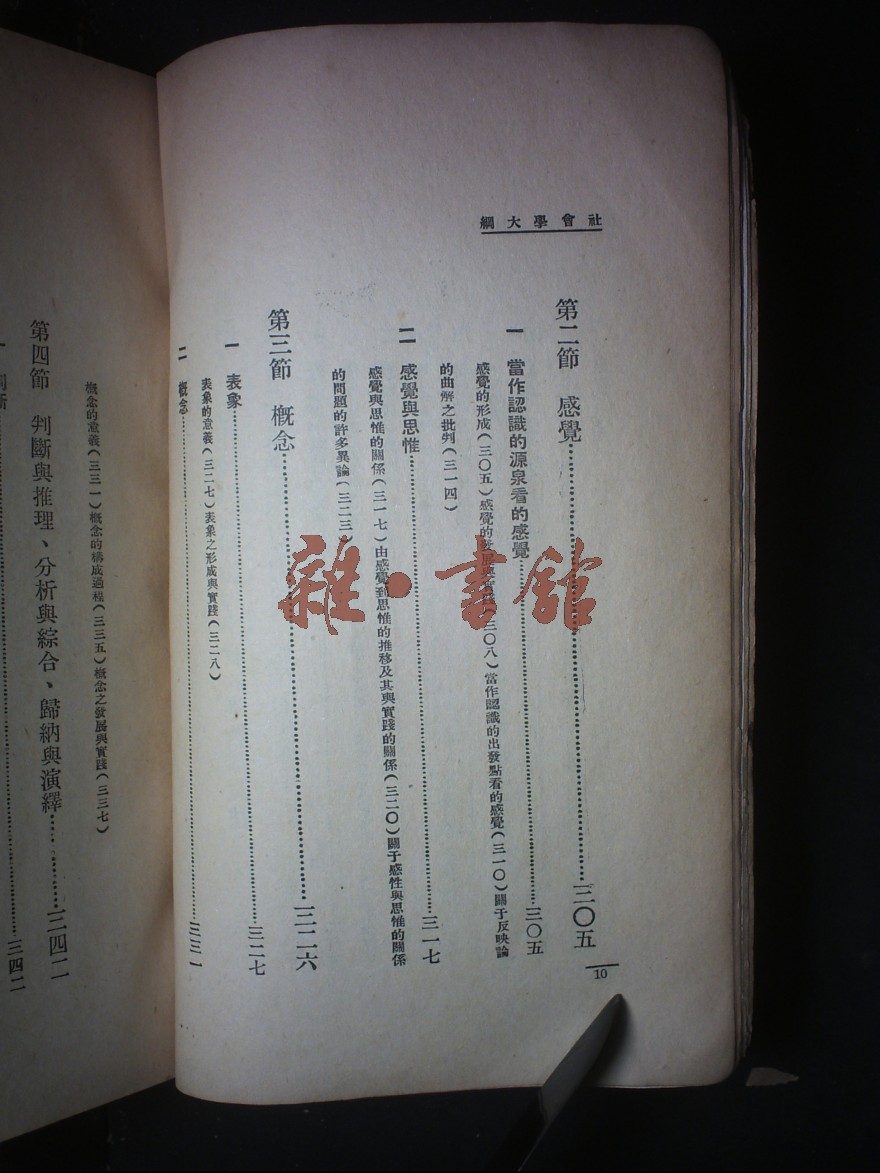 社會學大綱
第二節 感覺……三〇五
一 當作認識的源泉看的感覺……三〇五
感覺的形成(三〇五)感覺的發展與實踐(三〇八)當作認識的出發點看的感覺(三一〇)關于反映論
的曲解之批判(三一四)
二 感覺與思惟……三一七
感覺與思惟的關係(三一七)由感覺到思惟的推移及其與實踐的關係(三二〇)關于感性與思惟的關係
的問題的許多異論(三二三)
第三節 概念……三二六
一 表象……三二七
表象的意義(三二七)表象之形成與實踐(三二八)
二 概念……三三一
10
概念的意義(三三一)概念的構成過程(三三五)概念之發展與實踐(三三七)
第四節 判斷與推理、分析與綜合、歸納與演繹……三四二
一 判斷……三四二
雜·書館